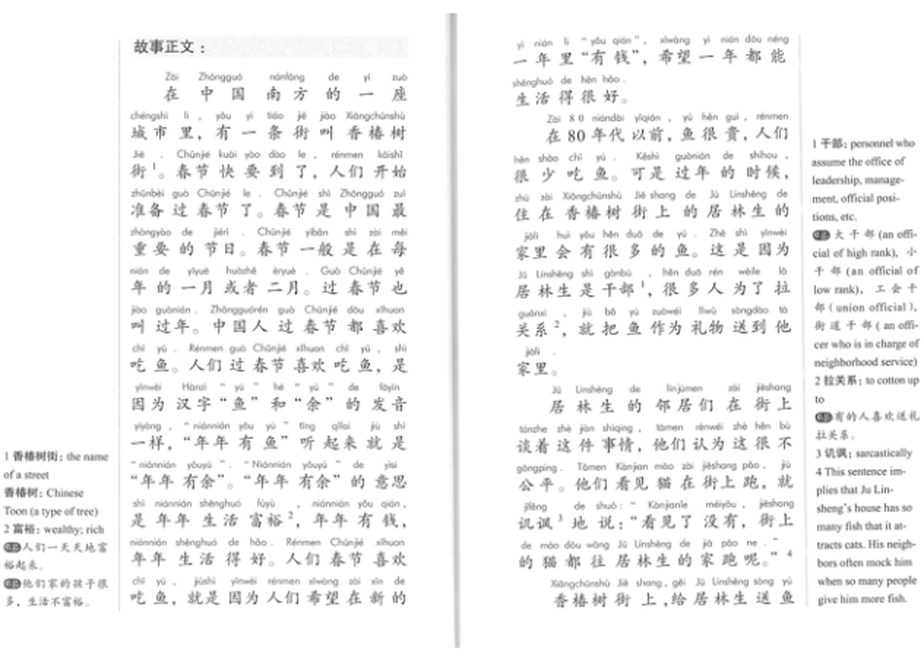 故事正文：
Zài Zhōngguó nánfāng de yí zuò
在中国南方的一座
chéngshì li, yǒu yì tiáo jiē jiào Xiāngchūnshù
城市里，有一条街叫香椿树
Jiē. Chūnjié kuài yào dào le, rénmen kāishǐ
街¹。春节快要到了，人们开始
zhǔnbèi guò Chūnjié le. Chūnjié shì Zhōngguó zuì
准备过春节了。春节是中国最
zhòngyào de jiérì. Chūnjié yìbān shì zài měi
重要的节日。春节一般是在每
nián de yīyuè huòzhě èryuè. Guò Chūnjié yě
年的一月或者二月。过春节也
jiào guònián. Zhōngguórén guò Chūnjié dōu xǐhuan
叫过年。中国人过春节都喜欢
chī yú. Rénmen guò Chūnjié xǐhuan chī yú, shì
吃鱼。人们过春节喜欢吃鱼，是
yīnwèi Hànzì "yú" hé "yú" de fāyīn
因为汉字“鱼”和“余”的发音
yíyàng, "niánnián yǒu yú" tīng qǐlai jiù shì
一样，“年年有鱼”听起来就是
"niánnián yǒuyú". "Niánnián yǒuyú" de yìsi
“年年有余”。“年年有余”的意思
shì niánnián shēnghuó fùyù, niánnián yǒu qián,
是年年生活富裕²，年年有钱，
niánnián shēnghuó de hǎo. Rénmen Chūnjié xǐhuan
年年生活得好。人们春节喜欢
chī yú, jiùshì yīnwèi rénmen xīwàng zài xīn de
吃鱼，就是因为人们希望在新的
1 香椿树街：the name
of a street
香椿树：Chinese
Toon (a type of tree)
2 富裕：wealthy; rich
人们一天天地富
裕起来。
他们家的孩子很
多，生活不富裕。
yì nián li "yǒu qián", xīwàng yì nián dōu néng
一年里“有钱”，希望一年都能
shēnghuó de hěn hǎo.
生活得很好。
Zài 80 niándài yǐqián, yú hěn guì, rénmen
在80年代以前，鱼很贵，人们
hěn shǎo chī yú. Kěshì guònián de shíhou,
很少吃鱼。可是过年的时候，
zhù zài Xiāngchūnshù Jiē shang de Jū Línshēng de
住在香椿树街上的居林生的
jiāli huì yǒu hěn duō de yú. Zhè shì yīnwèi
家里会有很多的鱼。这是因为
Jū Línshēng shì gànbù, hěn duō rén wèile lā
居林生是干部¹，很多人为了拉
guānxi, jiù bǎ yú zuòwéi lǐwù sòngdào tā
关系²，就把鱼作为礼物送到他
jiāli.
家里。
Jū Línshēng de línjūmen zài jiēshang
居林生的邻居们在街上
tánzhe zhè jiàn shìqing, tāmen rènwéi zhè hěn bù
谈着这件事情，他们认为这很不
gōngpíng. Tāmen Kànjian māo zài jiēshang pǎo, jiù
公平。他们看见猫在街上跑，就
jīfěng de shuō: "Kànjianle méiyǒu, jiēshang
讥讽³地说：“看见了没有，街上
de māo dōu wǎng Jū Línshēng de jiā pǎo ne." 
的猫都往居林生的家跑呢。”⁴
Xiāngchūnshù Jiē shang, gěi Jū Línshēng sòng yú
香椿树街上，给居林生送鱼
1 干部：personnel who
assume the office of
leadership, manage-
ment, official posi-
tions, etc.
大干部 (an offi-
cial of high rank), 小
干部 (an official of
low rank), 工会干
部 (union official),
街道干部 (an offi-
cer who is in charge of
neighborhood service)
2 拉关系：to cotton up
to
有的人喜欢送礼
拉关系。
3 讥讽：sarcastically
4 This sentence im-
plies that Ju Lin-
sheng's house has so
many fish that it at-
tracts cats. His neigh-
bors often mock him
when so many people
give him more fish.